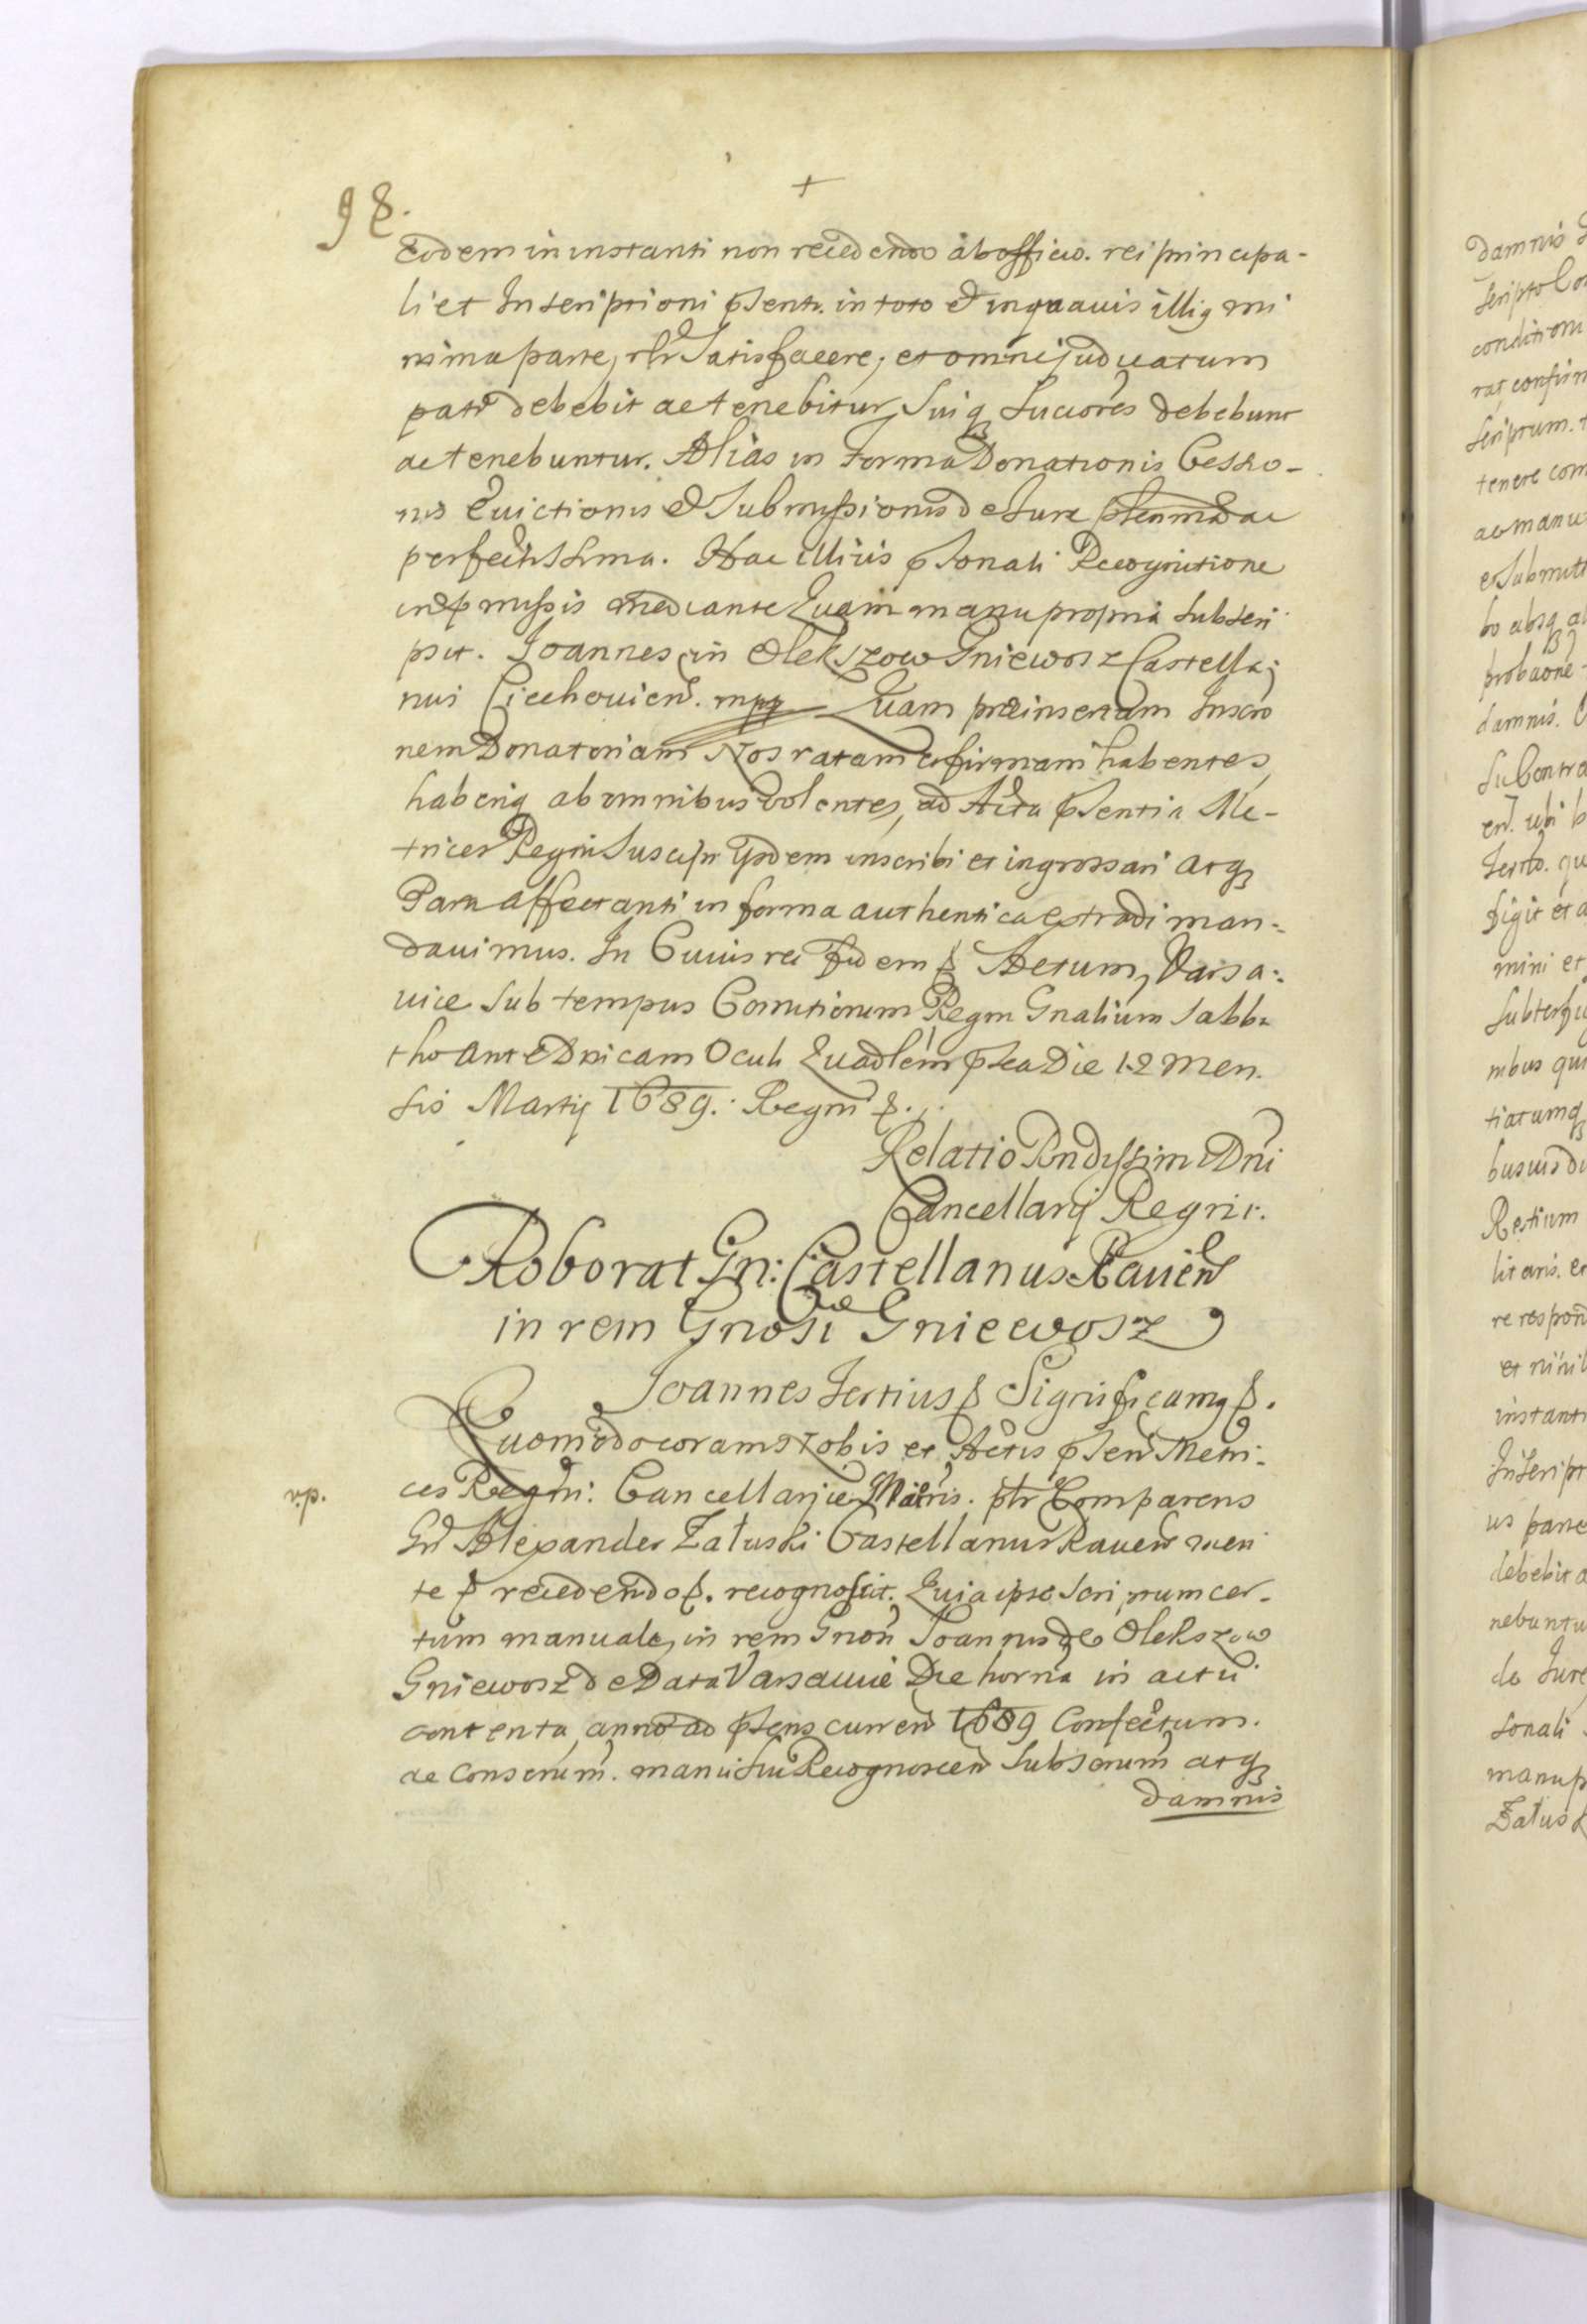 98.
+
Eodem in instanti non recedendo ab officio. rei principa-
li et Inscriptioni psenti. in toto et in quavis illig mi
nima parte, rlr Satisfacere, et omne judicatum
pati debebit ac tenebitur, Suiq Sucrores debebunt
ac tenebuntur. Alias in Forma Donationis Cessio-
nis Evictionis et Submissionis de Jure plenima ac
perfectissima. Hac illius psonali Recognitione
in pmissis mediante Quam manu propria subscri
psit. Joannes in Olekszow Gniewosz Castella:
nus Ciechovien. mpp Quam præinsertam Inscrio
nem Donatoriam Nos ratam et firmam habentes,
haberiq ab omnibus volentes, ad Acta psentia Me-
trices Regni Suscipi ysdem inscribi et ingrossari atq
Parti affectanti in forma authentica extradi man-
davimus. In Cuius rei fidem & Actum, Varsa:
viæ sub tempus Comitiorum Regni Gnalium Sabba
tho ante Dnicam Oculi Quadlem psca Die 12 Men.
sis Martij 1689. Regni &.
Relatio Rndissimi Dni
Cancellarij Regni.
Roborat Gn: Castellanus Raven
in rem Gnosi Gniewosz
Joannes Tertius & Significamg &.
Quomodo coram Nobis et Actis psen Metri:
v.p.
ces Regni: Cancellariæ Maioris. ptr Comparens
Gd Alexander Załuski Castellanus Raven men
te & recedendo &. recognoscit. Quia ipse Scriptum cer-
tum manuale, in rem Gnon Joannis de Olekszow
Gniewosz de Data Varsaviæ Die horna in actu
contenta, anno ad psens curren 1689 Confectum.
ac Conscrium. manu sui Recognoscen Subscrium atq
damnis
damnis
Scripto Con
conditiom
rag confirm
scriptum.
tenere com
ac manu
et Submitt
bo absq al
probaone
damnis. C
Su Contra
en. ubi b
Territo. qu
figit et a
mini et
Subterfu
nibus qui
tiatumq
busuis du
Restium
litaris. et
re respon
et nihil
instanti
Inscript
us parte
debebit a
nebuntu
de Jure
sonali
manu p
Załusk